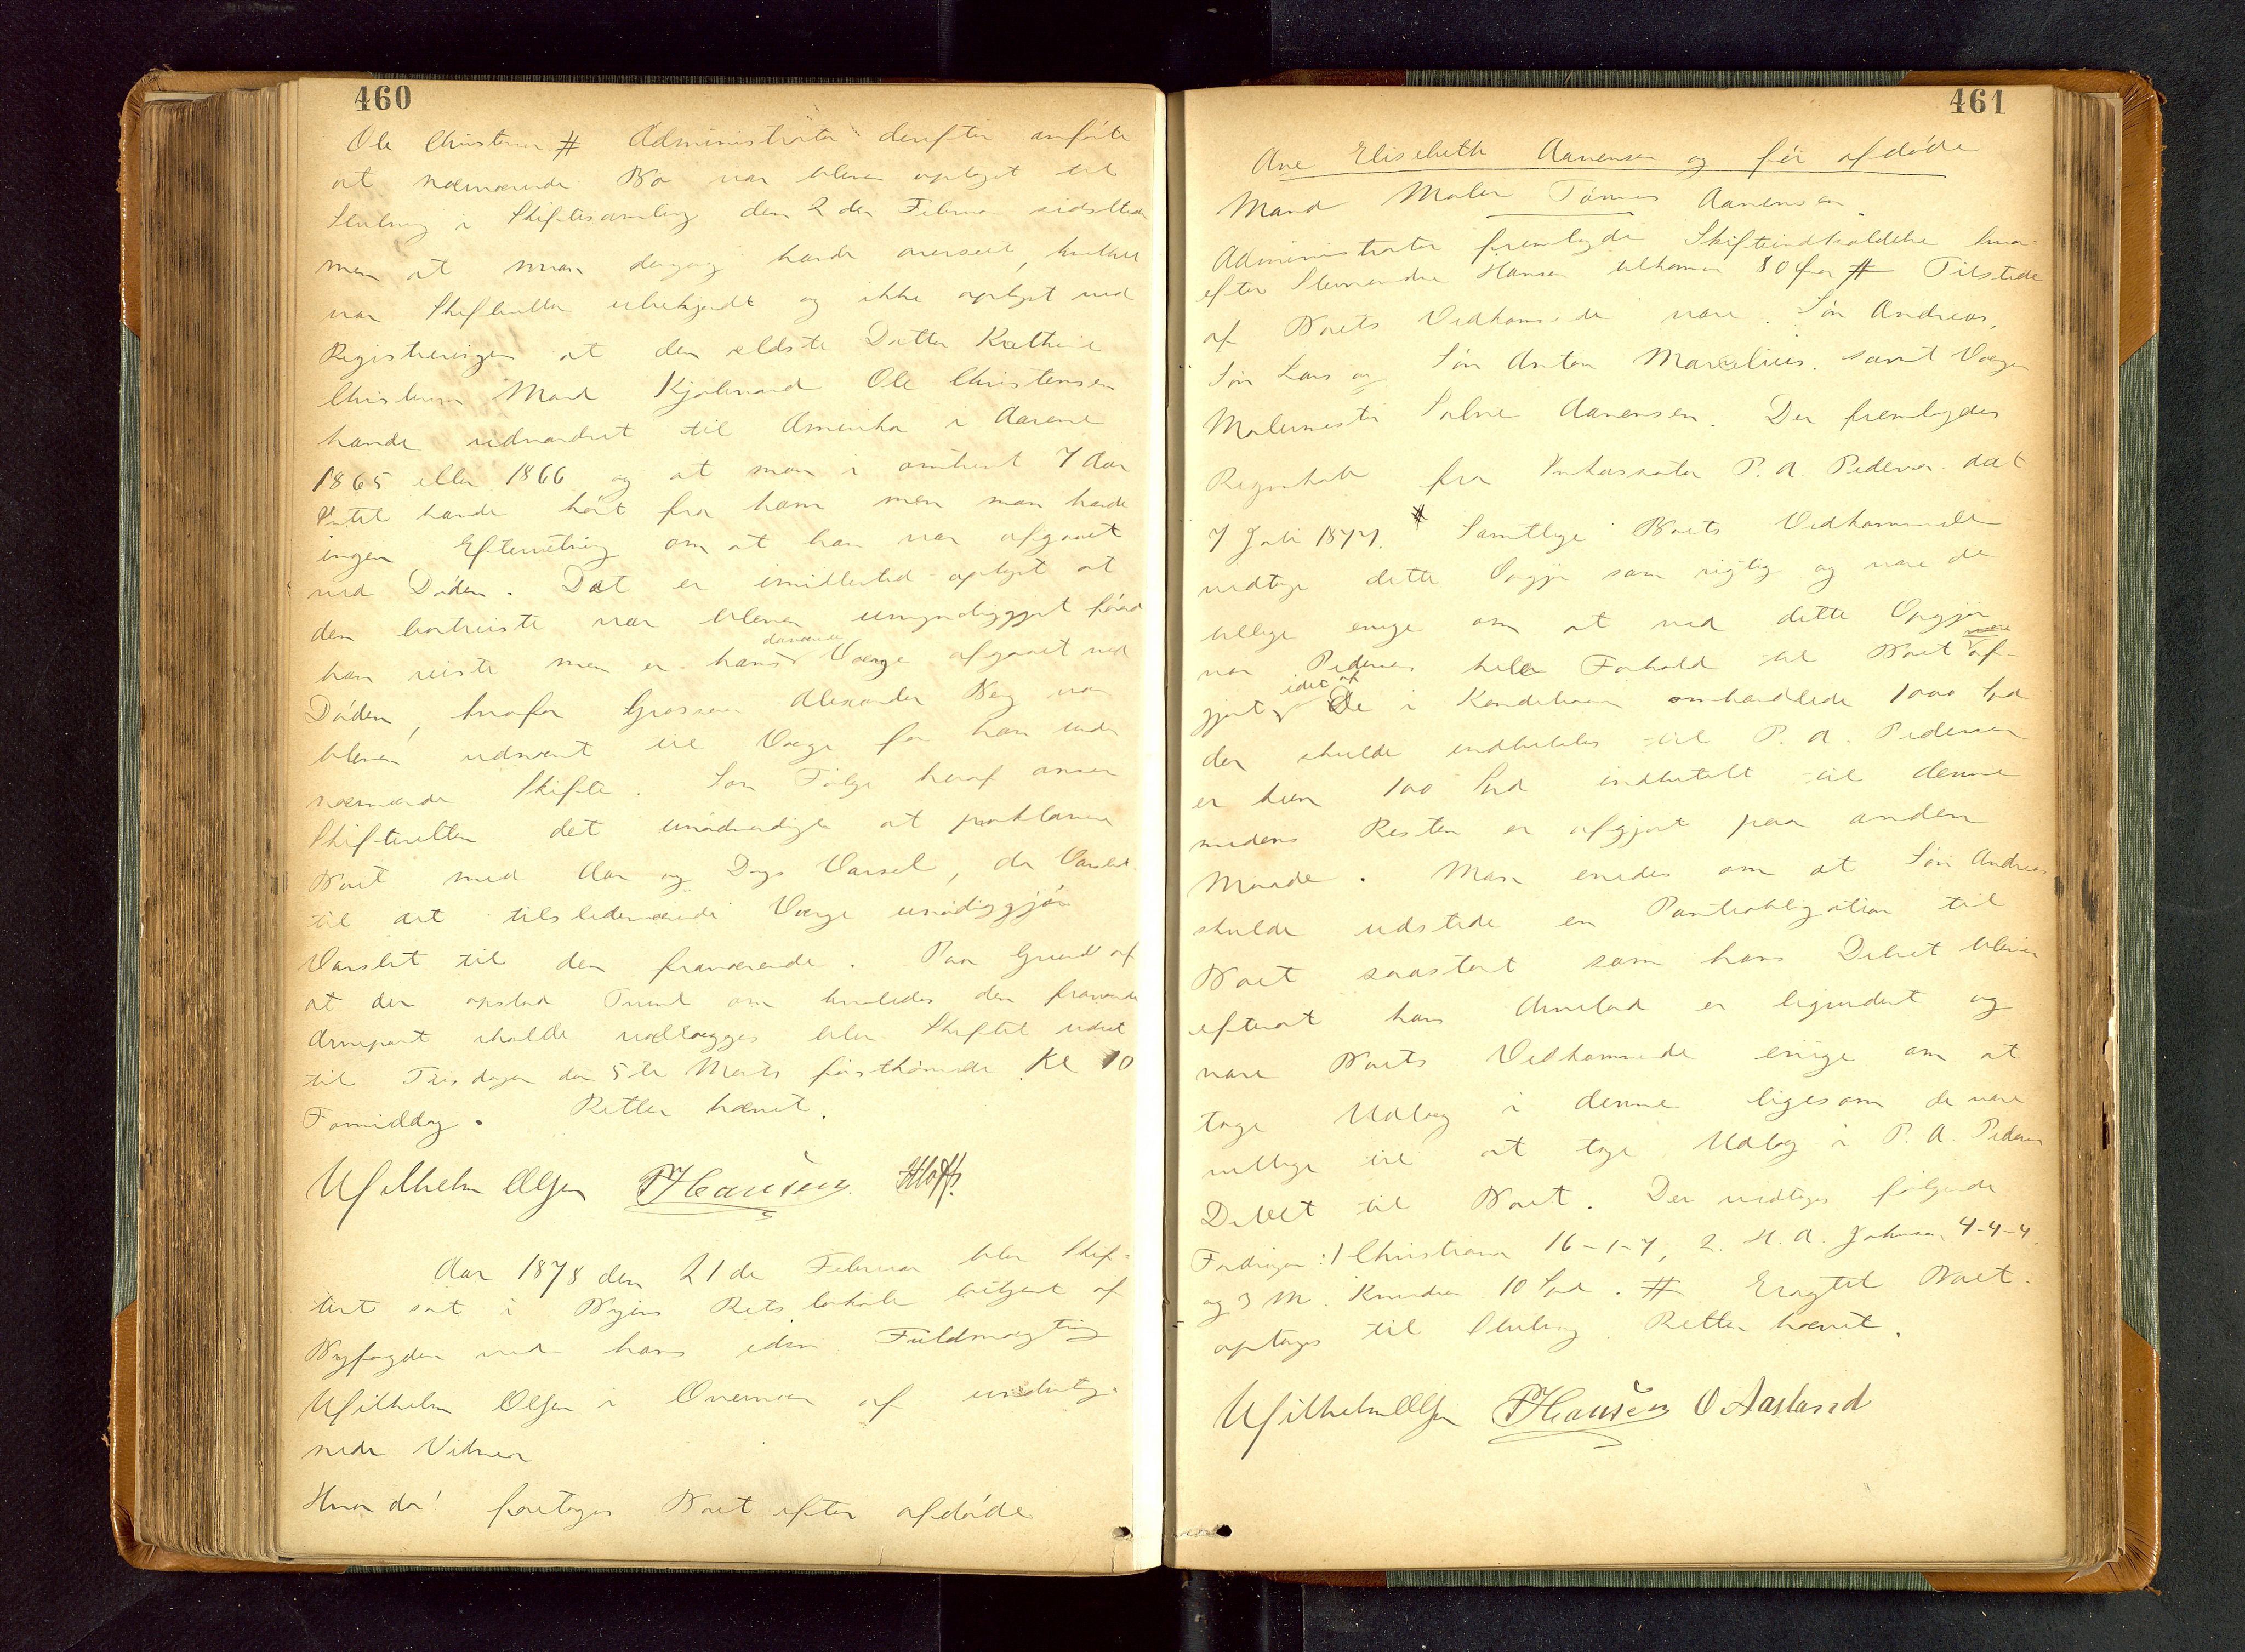 460
Ole Christensen # Administrator derefter anførte
at nærværende Bo var bleven optaget til
Slutning i Skiftesamling den 2den Februar sidstleden
men at man dengang havde overseet, hvilket
var Skifteretten ubekjendt og ikke oplyst ved
Registreringen at den ældste Datter Kathrine
Christensens Mand Kjøbmand Ole Christensen
havde udvandret til Amerika i Aarene
1865 eller 1866 og at man i omtrent 7 Aar
Intet havde hørt fra ham men man havde
ingen Efterretning om at han var afgaaet
ved Døden. Det er imidlertid oplyst at
den bortreiste var bleven umyndiggjort førend
han reiste men er hans daværende Værge afgaaet ved
Døden, hvorfor Grosserer Alexander Berg var
bleven udnævnt til Værge for ham under
nærværende Skifte. Som Følge heraf anser
Skifteretten det unødvendigt at proklamere
Boet med Aar og Dags Varsel, da Varslet
til det tilstedeværende Værge unødiggjør
Varslet til den fraværende. Paa Grund af
at der opstod Tvivl om hvorledes den fraværendes
Arvepart skulde udlægges blev Skiftet udsat
til Tirsdagen den 5te Marts førstkommende Kl 10
Formiddag. Retten hævet.
Wilhelm Olsen PHansen
Aar 1878 den 21de Februar blev Skif-
teret sat i Byens Retslokale betjent af
Byfogden ved hans edsv. Fuldmægtig
Wilhelm Olsen i Overvær af underteg-
nede Vidner
Hvor da! foretages Boet efter afdøde
461
Ane Elisebeth Aanensen og før afdøde
Mand Maler Tønnes Aanensen.
Administrator fremlagde Skifteindkaldelse hvor-
efter Stevnevidne Hansen tilkommer 80 Øre # Tilstede
af Boets Vedkommende vare. Søn Andreas,
Søn Lars og Søn Anton Marcelius. samt Værgen
Malermester Salve Aanensen. Der fremlagdes
Regnskab fra Inkassator P. A. Pedersen dat
7 Juli 1877. # Samtlige Boets Vedkommende
vedtage dette Opgjør som rigtig og vare de
tillige enige om at ved dette Opgjør
var Pedersens hele Forhold til Boet være af-
gjort, idet af De i Kjendelsen omhandlede 1000 Spd
der skulde indbetales til P. A. Pedersen
er kun 100 Spd indbetalt til denne
medens Resten er afgjort paa anden
Maade. Man enedes om at Søn Andreas
skulde udstede en Pantobligation til
Boet saastort som hans Debet bliver
efterat hans Arvelod er liqvideret og
vare Boets Vedkommende enige om at
tage Udlæg i denne ligesom de vare
villige til at tage Udlæg i P. A. Pedersens
Debet til Boet. Der vedtages følgende
Fordringer: 1 Christiansen 16-1-7, 2. H. A. Johnsen 4-4-4.
og 3 M. Knudsen 10 Spd. # Eragtet Boet
optages til Slutning. Retten hævet.
Wilhelm Olsen PHansen O Aasland